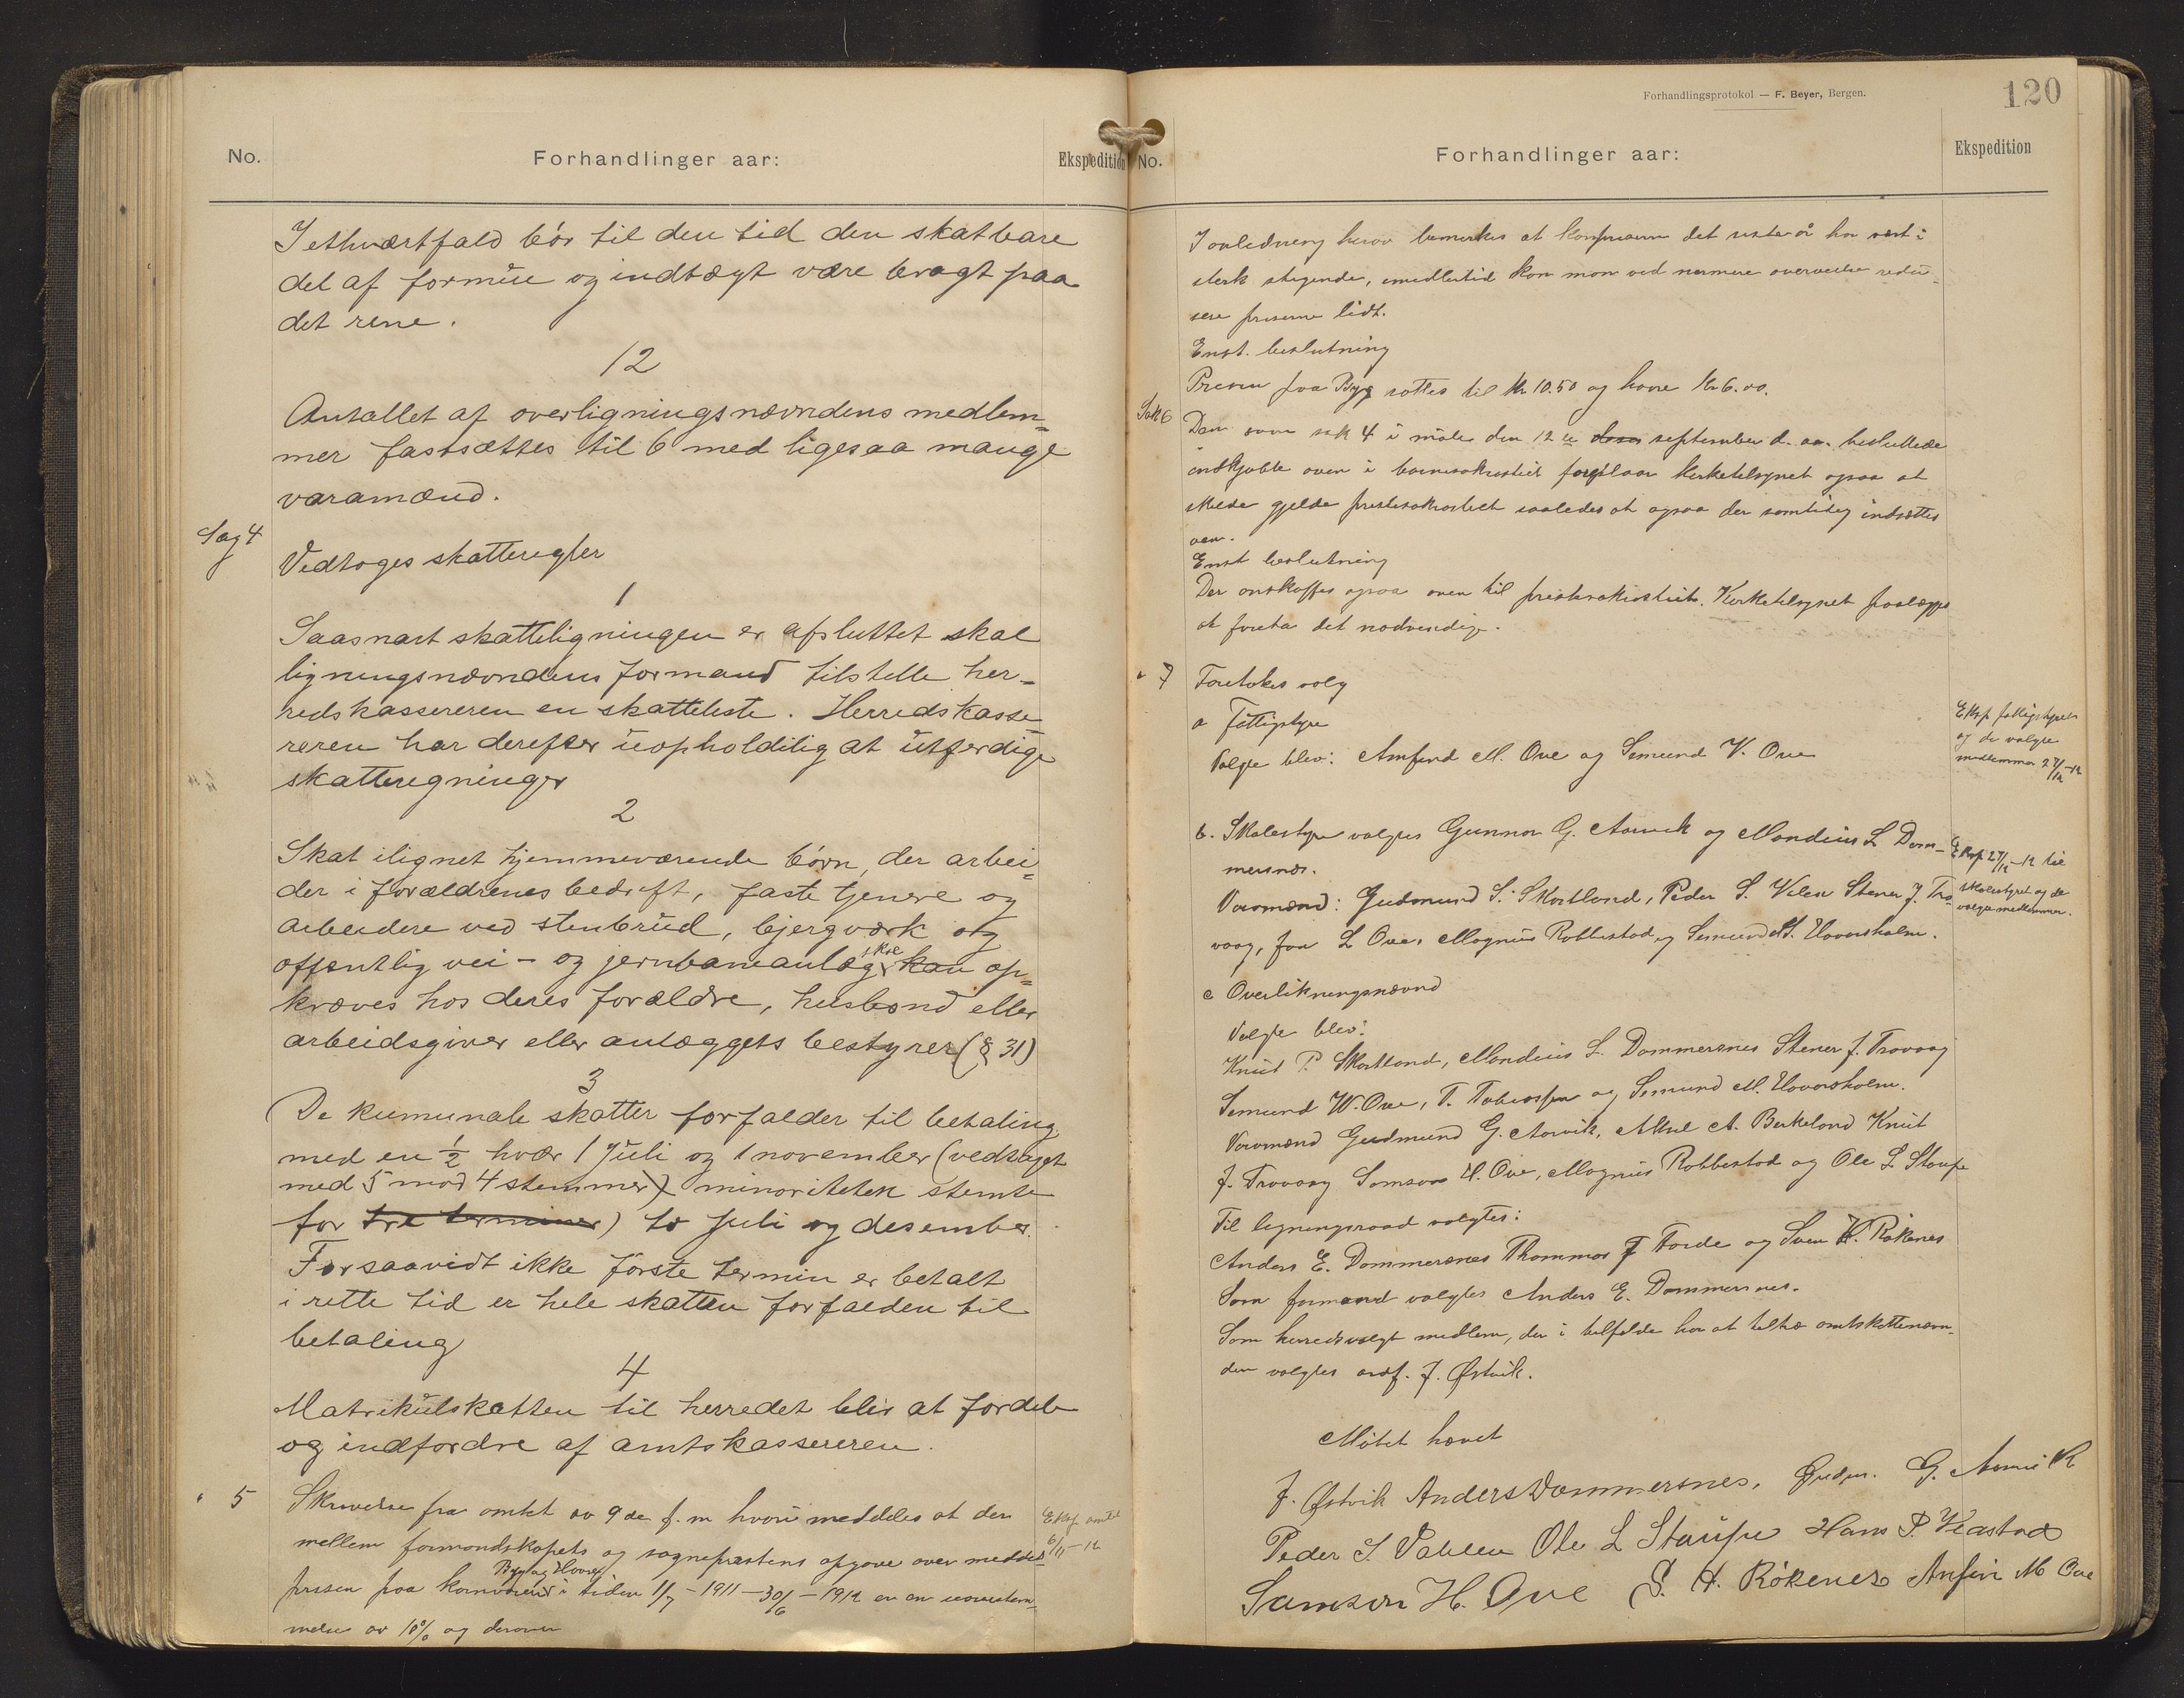 No.
Forhandlinger aar:
Ekspedition
I ethvært fald bør til den tid den skatbare
del af formue og indtægt være bragt paa
det rene.
12
Antallet af overligningsnævndens medlem=
mer fastsættes til 6 med ligesaa mange
varamænd.
Sag 4
Vedtoges skatteregler
1
Saasnart skatteligningen er afsluttet skal
ligningsnævndens formand tilstelle her-
redskassereren en skatteliste. Herredskasse
reren har derefter uopholdilig at utferdige
skatteregninger
2
Skat ilignet hjemmeværende børn, der arbei=
der i forældrenes bedrift, faste tjenere og
arbeidere ved stenbrud, bjergværk og
offentlig vei- og jernbaneanlæg skal kan op=
kræves hos deres forældre, husbond eller
arbeidsgiver eller anlæggets bestyrer (§ 31)
3
De kumunale skatter forfalder til betaling
med en ½ hvær 1 Juli og 1 november (vedtaget
med 5 mod 4 stemmer) minoriteten stemte
for tre terminer) to Juli og desember.
Forsaavidt ikke første termin er betalt
i rette tid er hele skatten forfalden til
betaling
4
Matrikulskatten til herredet blir at fordele
og indfordre af amtskassereren.
" 5
Skrivelse fra amtet av 9de f. m hvori meddeles at der
mellem formandskapets og sogneprestens opgave over meddel
prisen paa kornvarer Byg og Havre i tiden 1/7 - 1911 - 30/6 - 1912 er en uoverstem-
melse av 10% og derover
Eksp amtet
6/11-12
Forhandlingsprotokol — F. Beyer, Bergen.
120
No.
Forhandlinger aar:
Ekspedition
I anledning herav bemerkes at kornprisene det siste år har vært i
sterk stigende, imidlertid kan man ved nærmere overveielse redu-
sere priserne lidt.
Enst. beslutning
Prisen paa Byg sættes til kr 10.50 og havre kr 6.00.
Sak 6
Den som sak 4 i møte den 12te september d. aa. besluttede
indkjøpte oven i barnesakristiet foreslaar kirketilsynet ogsaa at
skulde gjelde prestesakristiet saaledes at ogsaa der samtidig indsættes
oven.
Enst beslutning
Der anskaffes ogsaa oven til prestesakristiet. Kirketilsynet paalægges
at foreta det nødvendige.
" 7
Foretokes valg
a Fattigstyre
Valgte blev: Amfind M. Ove og Simund V. Ove
Eksp fattigstyret
og de valgte
medlemmer 27/12-12
b. Skolestyre valgtes Gunnar G. Aarvik og Mandius L Dom-
mersnes.
Eksp 27/12-12 til
skolestyret og de
valgte medlemmer.
Varamænd: Gudmund S. Skortland, Peder S. Velen Stener J. Tra
vaag, L Ove, Magnus Robbestad og Simund M. Haversholm.
c Overlikningsnævnd
Valgte blev:
Knut P. Skortland, Mandius L. Dommersnes Stener J. Travaag
Simund W. Ove, T. Tobiassen og Simund M. Haversholm.
Varamænd Gudmund G. Aarvik, A. Berkeland Knut
J. Travaag Samson H. Ove, Magnus Robbestad og Ole L Staupe
Til ligningsraad valgtes:
Anders E. Dommersnes Thommas J Førde og Sven H. Røkenes
Som formand valgtes Anders E. Dommersnes.
Som herredsvalgt medlem, der i tilfælde har at tiltræ amtskattenævn-
den valgtes ordf. J. Østvik.
Møtet hævet
J. Østvik Anders Dommersnes. Gudm. G. Aarvik
Peder S. Vahlen Ole L Staupe Hans P. Veastad
Samson H. Ove S. H. Røkenes Anfin M Ove